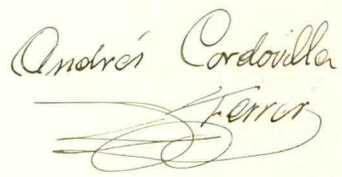 Andrés Cordovilla
Ferrer